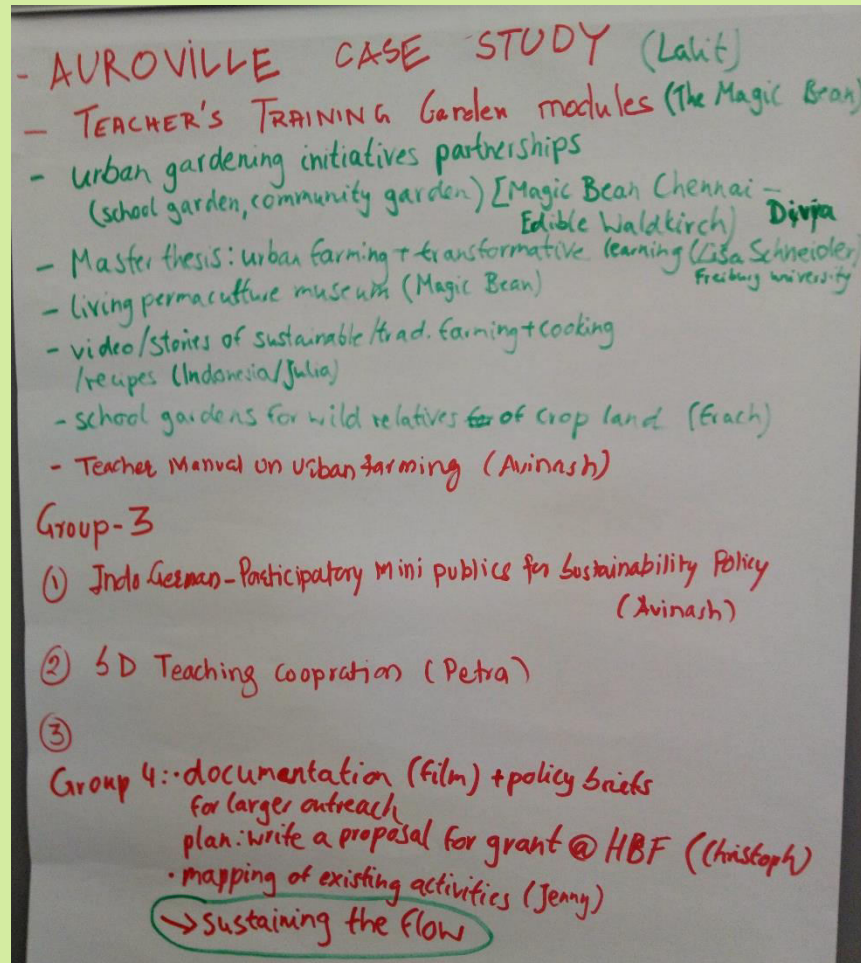 - AUROVILLE CASE STUDY (Lalit)
- TEACHER'S TRAINING Garden modules (The Magic Bean)
- urban gardening initiatives partnerships
(school garden, community garden) [Magic Bean Chennai -
Edible Waldkirch) Divja
- Master thesis: urban farming + transformative learning (Lisa Schneider)
Freiburg university
- living permaculture museum (Magic Bean)
- video/stories of sustainable/trad. farming + cooking
/recipes (Indonesia/Julia)
- school gardens for wild relatives for of crop land (Erach)
- Teacher Manual on urban farming (Avinash)
Group-3
① Indo German-Participatory Mini publics for Sustainability Policy
(Avinash)
② SD Teaching coopration (Petra)
③
Group 4: · documentation (film) + policy briefs
for larger outreach
plan: write a proposal for grant @ HBF (Christoph)
· mapping of existing activities (Jenny)
→ sustaining the flow